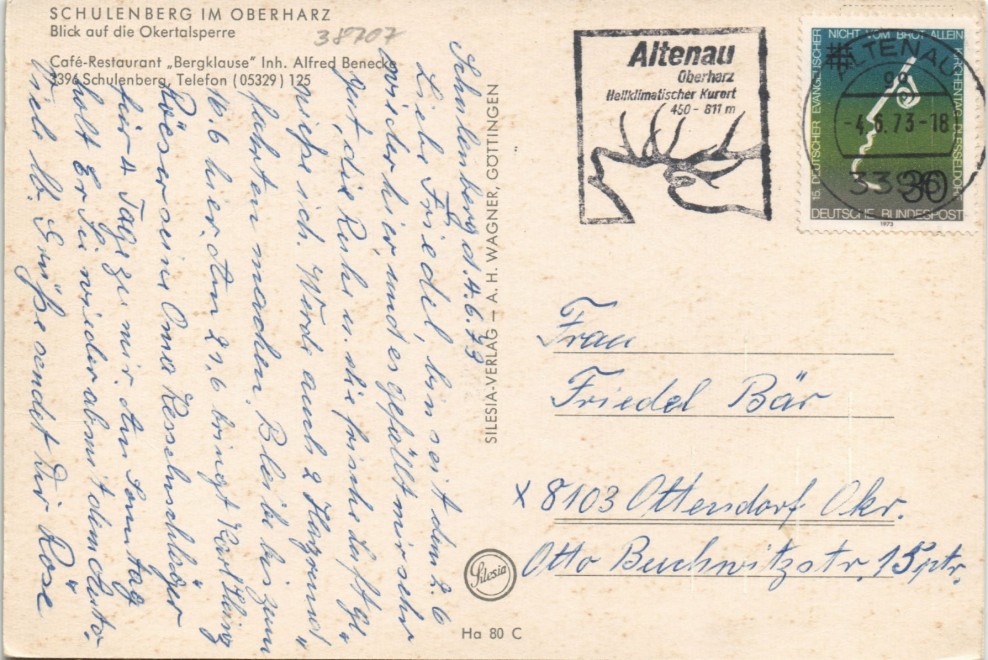 SCHULENBERG IM OBERHARZ
Blick auf die Okertalsperre
38707
Café-Restaurant „Bergklause" Inh. Alfred Benecke
3396 Schulenberg, Telefon (05329) 125
Schulenberg d. 4.6.73
Liebe Friedel, bin seit dem 2.6
wieder hier, und es gefällt mir sehr
gut, die Ruhe u. die frische Luft ge„
nieße ich. Würde auch 2 Harzrund„
fahrten machen. Bleibe bis zum
16.6 hier. Am 21.6 bringt Karl Heinz
Röschen Oma
für 4 Tage zu mir. Am Sonntag
holt Er Sie wieder ab mit dem Auto.
Viele lb. Grüße sendet Dir Rose
SILESIA-VERLAG – A. H. WAGNER, GÖTTINGEN
Silesia
Ha 80 C
Altenau
Oberharz
Heilklimatischer Kurort
450 - 811 m
ALTENAU
-4.6.73-18
3396
NICHT VOM BROT ALLEIN
15. DEUTSCHER EVANGELISCHER KIRCHENTAG DUESSELDORF
30
DEUTSCHE BUNDESPOST
1973
Frau
Friedel Bär
x 8103 Ottendorf Okr.
Otto Buchwitzstr. 15 ptr.